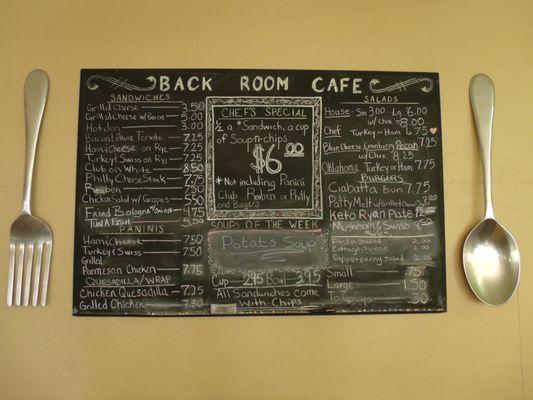 BACK ROOM CAFE
SANDWICHES
Grilled Cheese 3.50
Grilled Cheese w/Bacon 5.00
Hot dog 3.00
Bacon Lettuce Tomato 7.25
Ham & Cheese on Rye 7.25
Turkey & Swiss on Rye 7.25
Club on White 8.50
Philly Cheese Steak
Reuben
Chicken Salad w/Grapes 5.50
Fried Bologna & Onions 4.75
Tuna Fish
PANINIS
Ham & Cheese 7.50
Turkey & Swiss 7.50
Grilled
Parmesan Chicken 7.75
QUESADILLA/WRAP
Chicken Quesadilla 7.25
Grilled Chicken 7.50
CHEF'S SPECIAL
½ a *Sandwich, a cup
of Soup-n-chips
$6.00
*Not including Panini
Club Reuben or Philly
and Burgers
SOUPS OF THE WEEK
Potato Soup
Cup 2.95 Bowl 3.95
All Sandwiches Come
With Chips
SALADS
House - Sm 3.00 Lg 6.00
w/Chix 8.00
Chef Turkey or Ham 6.75
Blue Cheese, Cranberry & Pecan
w/Chix 8.25
Oklahoma Turkey or Ham 7.75
BURGERS
Ciabatta bun 7.75
Patty Melt w/Grilled Onions
Keto Ryan Plate
Mushroom & Swiss
Pasta Salad 2.00
Cottage cheese 1.00
Copper penny salad 2.00
Small .75
Large 1.50
To Go Cups .30